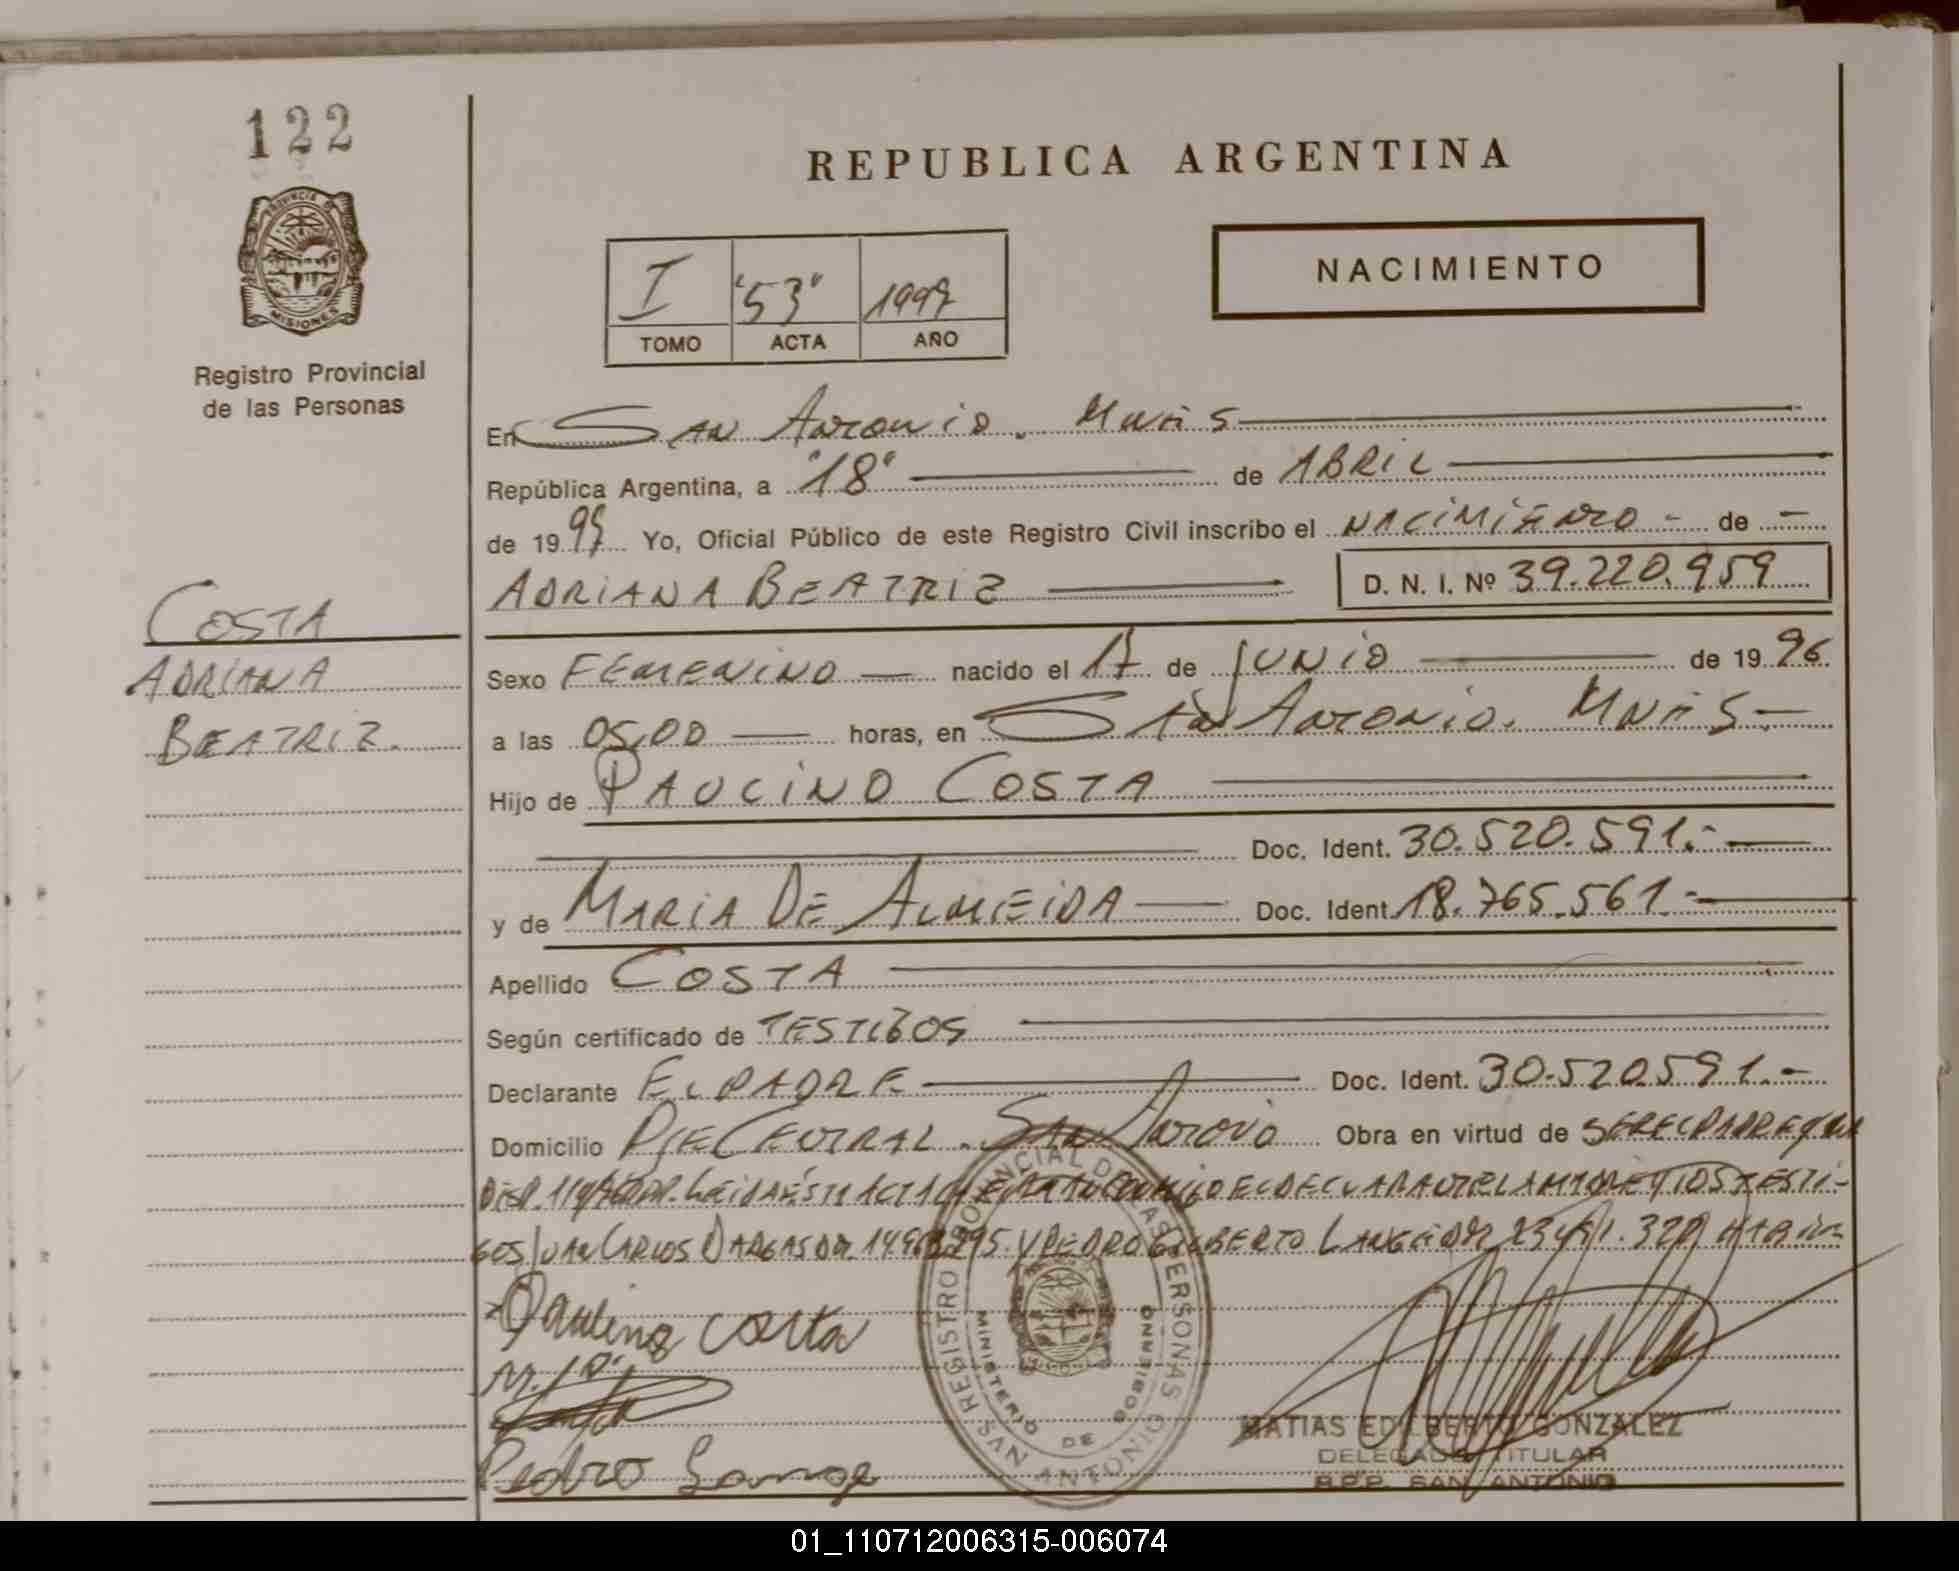 122
PROVINCIA DE
MISIONES
Registro Provincial
de las Personas
COSTA
ADRIANA
BEATRIZ.
REPUBLICA ARGENTINA
I "53" 1997
TOMO ACTA AÑO
NACIMIENTO
En SAN ANTONIO. Mnes
República Argentina, a "18" de ABRIL
de 1997 Yo, Oficial Público de este Registro Civil inscribo el NACIMIENTO - de -
ADRIANA BEATRIZ D. N. I. Nº 39.220.959
Sexo FEMENINO nacido el 17 de JUNIO de 1996.
a las 05,00 horas, en SAN ANTONIO. Mnes
Hijo de PAULINO COSTA
Doc. Ident. 30.520.591.-
y de MARIA DE ALMEIDA Doc. Ident. 18.765.561.-
Apellido COSTA
Según certificado de TESTIGOS
Declarante EL PADRE Doc. Ident. 30.520591.-
Domicilio PJE CENTRAL. SAN ANTONIO Obra en virtud de SER EL PADRE
LEIDA ESTA ACTA EL DECLARANTE LA MADRE Y LOS TESTI-
GOS JUAN CARLOS Y PEDRO GILBERTO
Paulino Costa
Pedro
REGISTRO PROVINCIAL DE LAS PERSONAS
MINISTERIO DE GOBIERNO
SAN ANTONIO
MATIAS EDILBERTO GONZALEZ
DELEGADO TITULAR
R.P.P. SAN ANTONIO
01_110712006315-006074